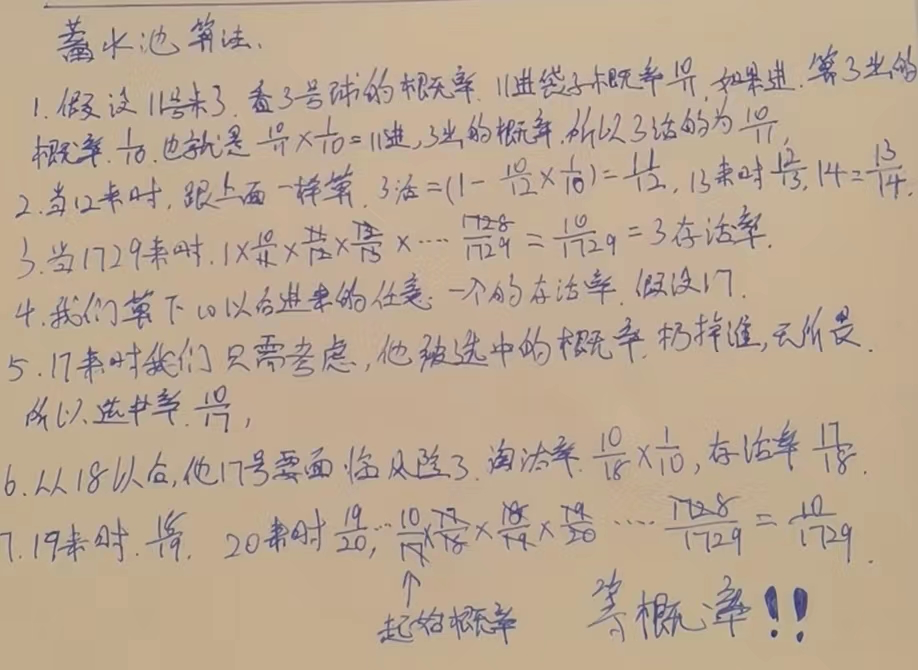 蓄水池算法.
1.假设11号来了.看3号球的概率.11进袋子概率10/11,如果进.第3出的
概率.1/10.也就是10/11×1/10=11进,3出的概率.所以3活的为10/11,
2.当12来时,跟上面一样算.3活=(1-10/12×1/10)=11/12,13来时12/13,14=13/14.
3.当1729来时.1×10/11×11/12×12/13×····1728/1729=10/1729=3存活率.
4.我们算下10以后进来的任意.一个的存活率.假设17.
5.17来时我们只需考虑,他被选中的概率.扔掉谁,无所畏.
所以.选中率.10/17,
6.从18以后,他17号要面临风险了.淘汰率.10/18×1/10,存活率17/18.
7.19来时.18/19. 20来时19/20,···10/17×17/18×18/19×19/20····1728/1729=10/1729.
↑
起始概率 等概率!!